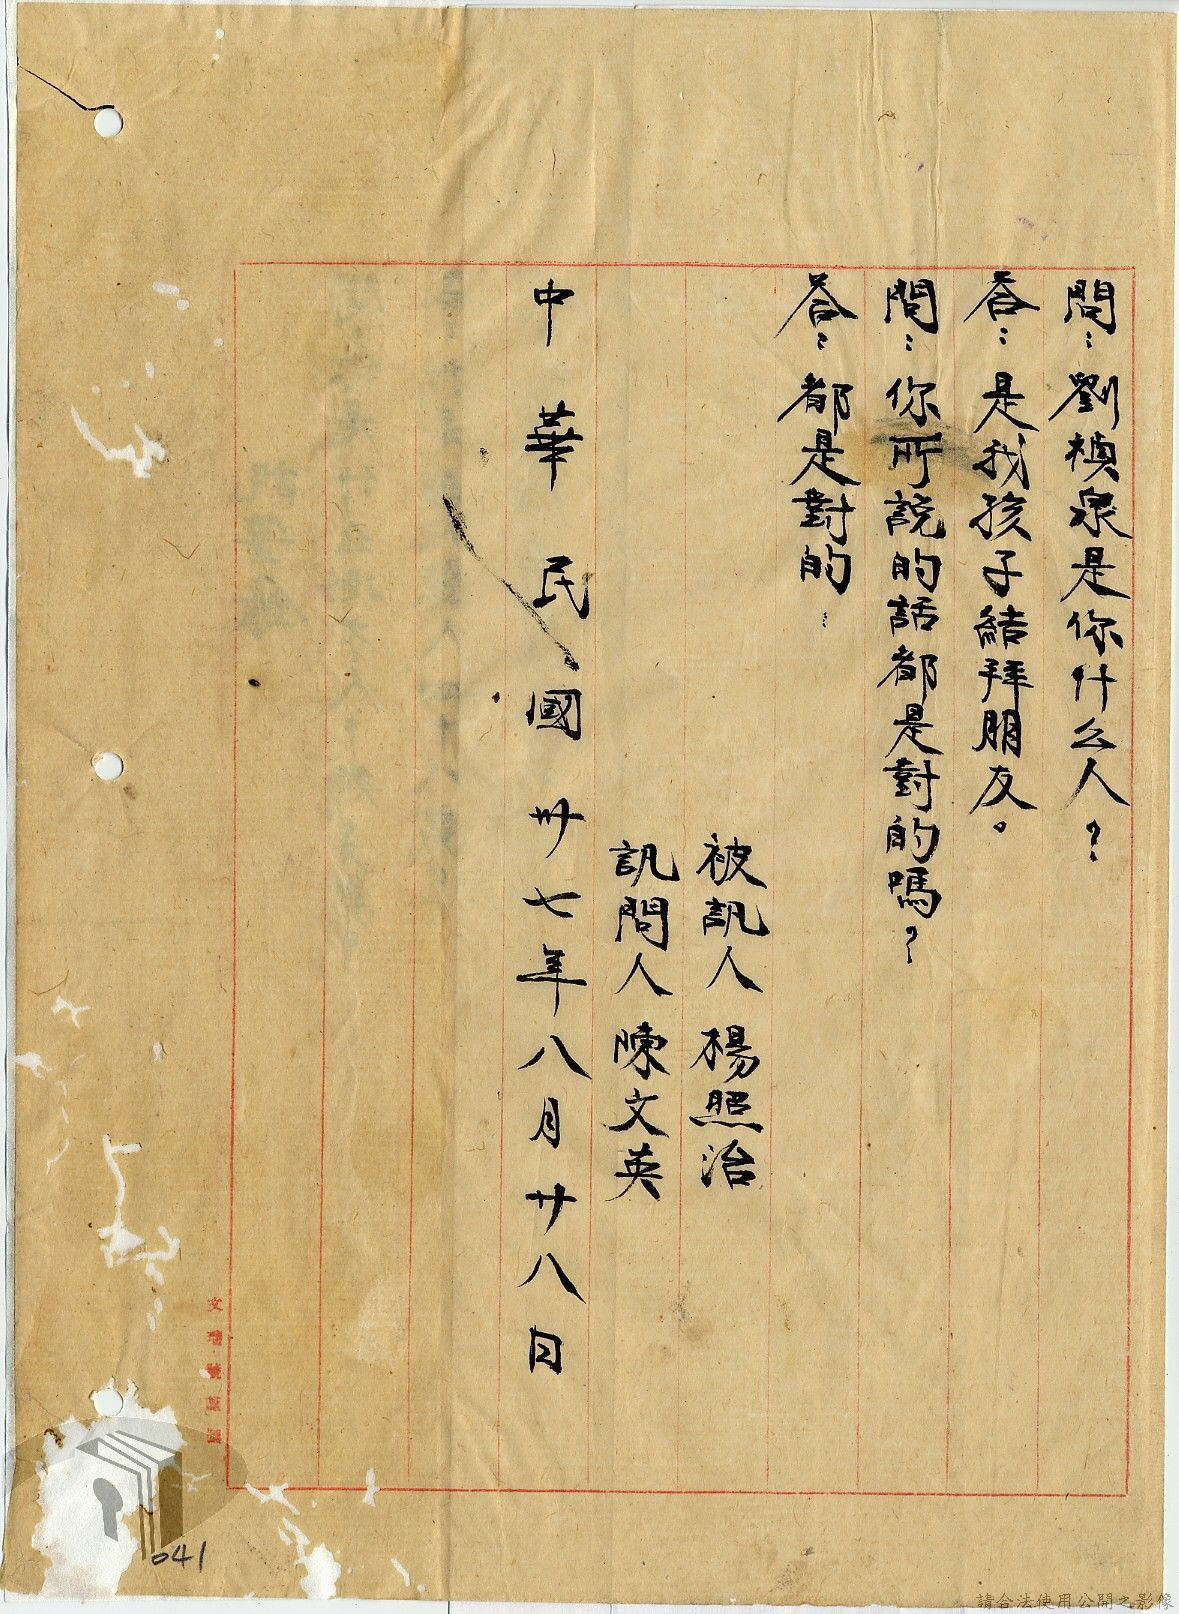 問：劉楨泉是你什么人？
答：是我孩子結拜朋友。
問：你所說的話都是對的嗎？
答：都是對的：
被訊人 楊照治
訊問人 陳文英
中華民國卅七年八月廿八日
041
請合法使用公開之影像